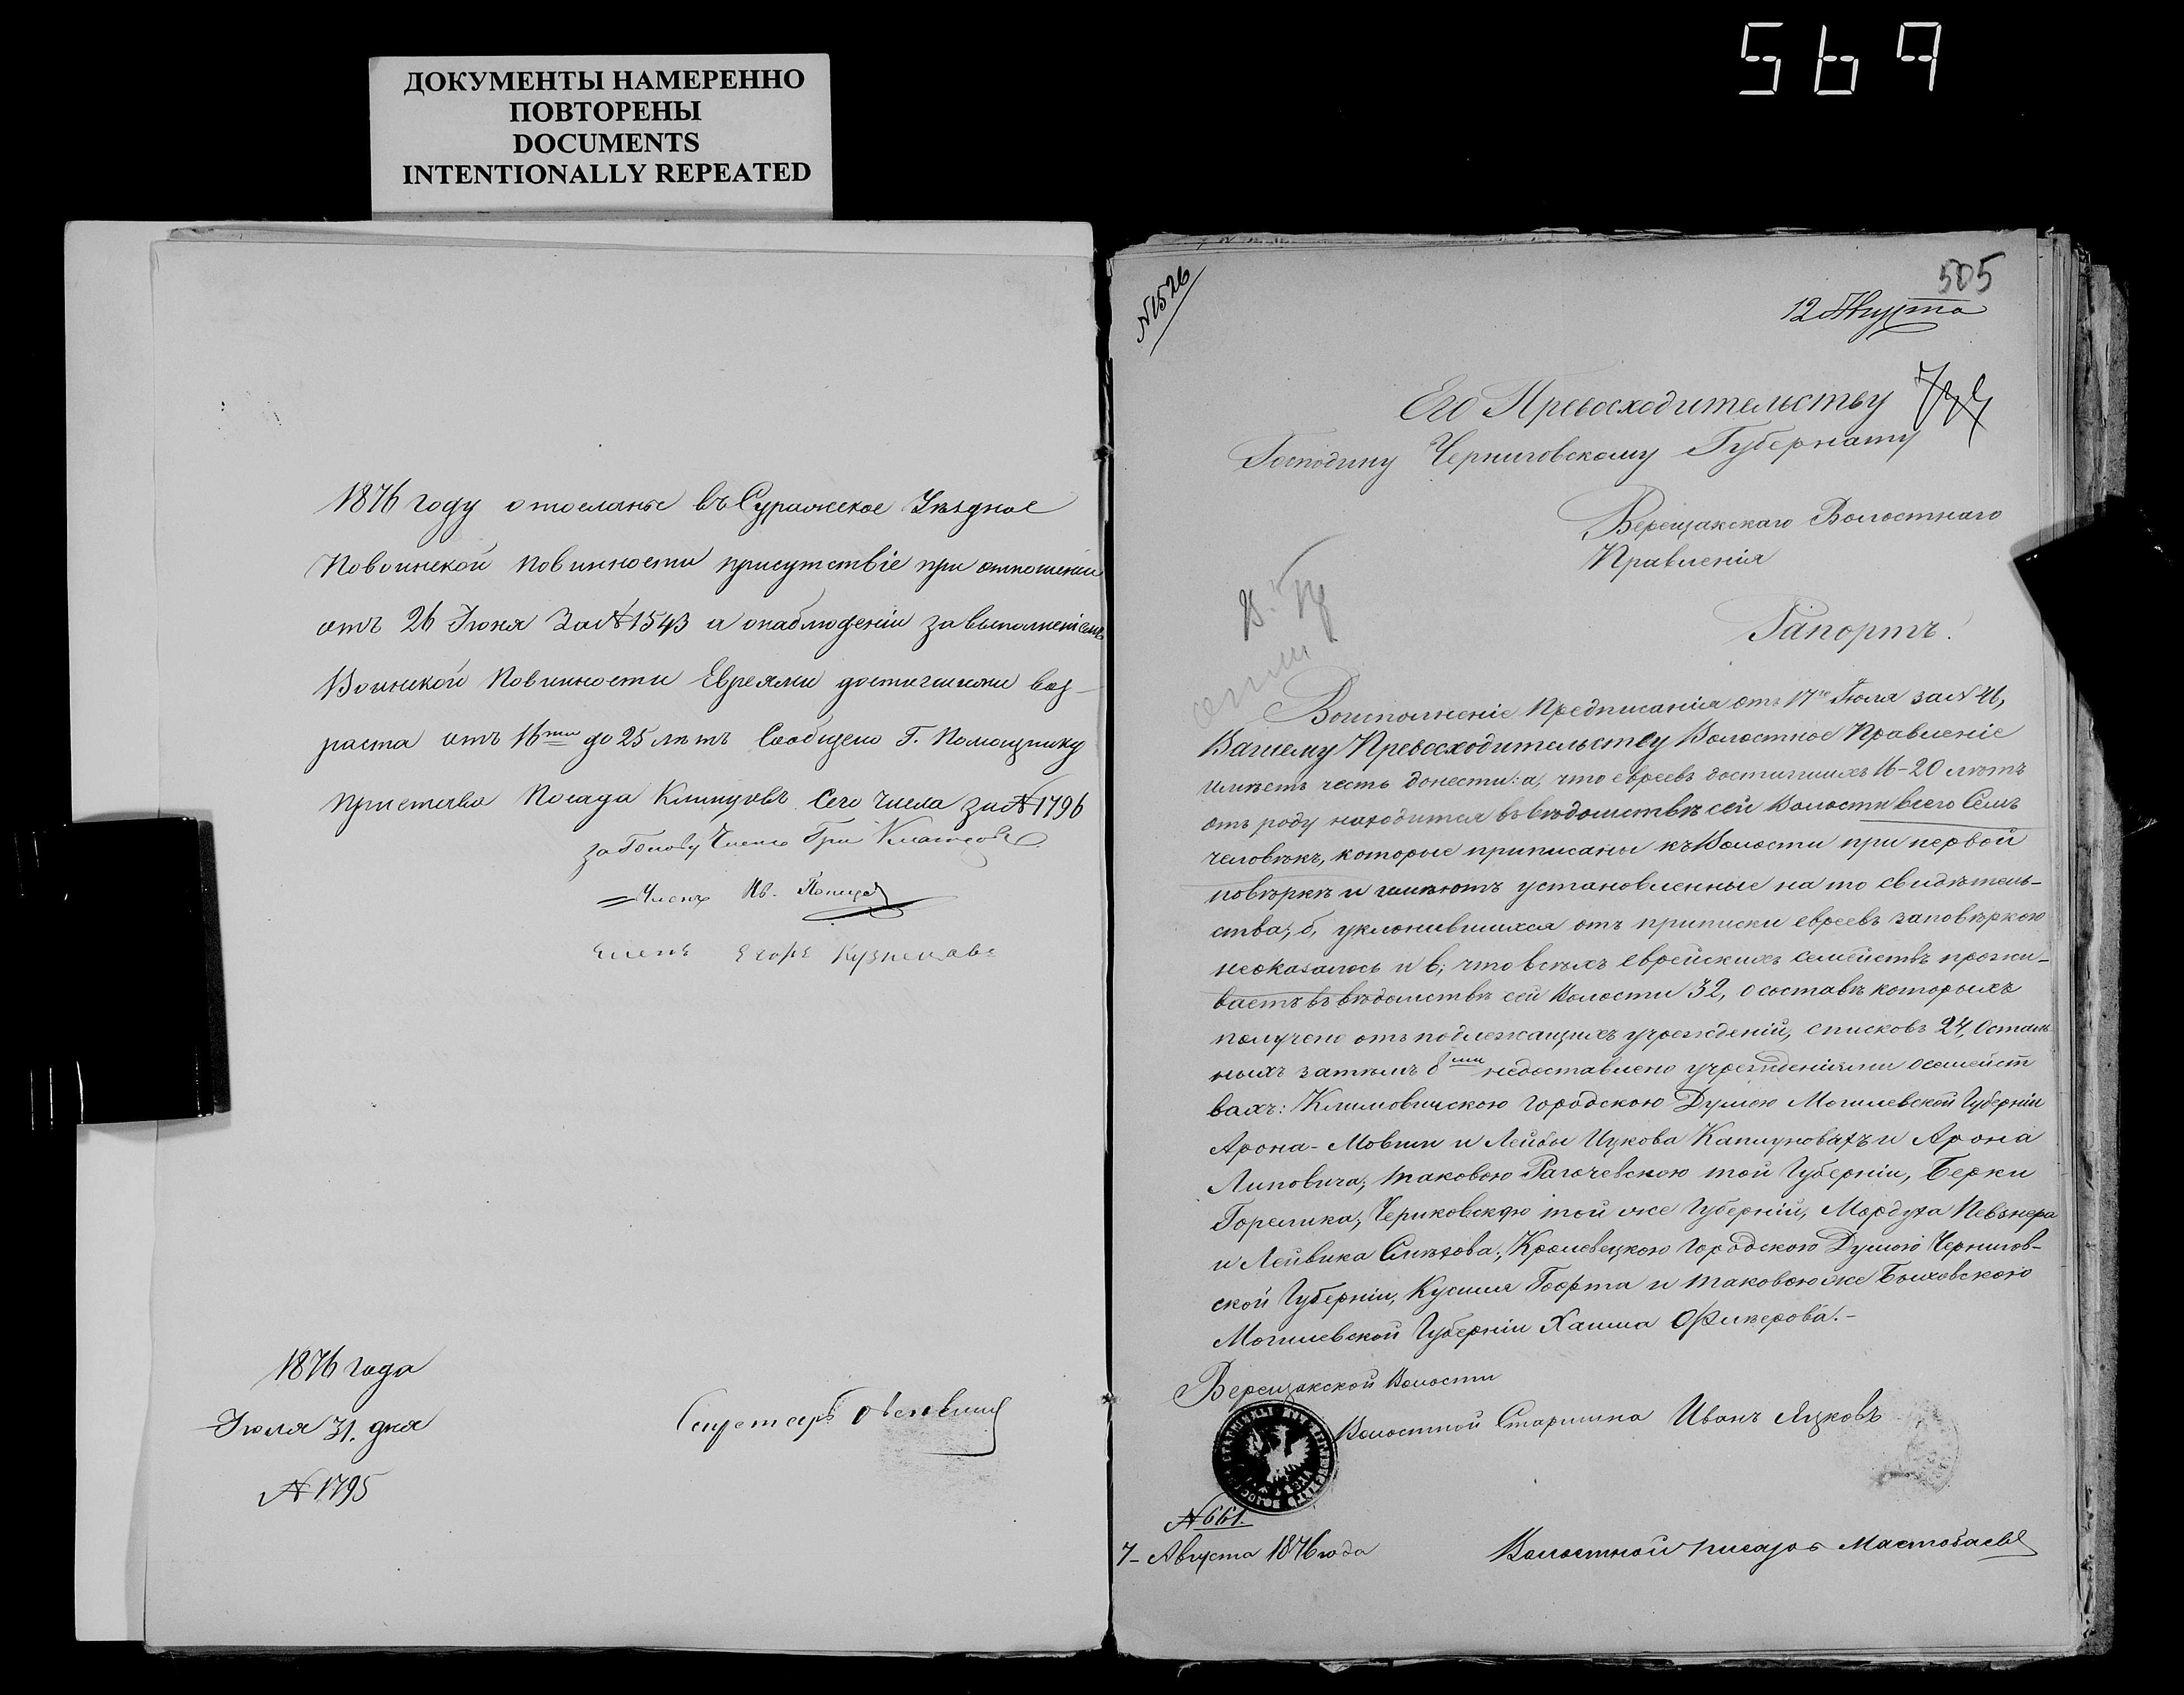 569
ДОКУМЕНТЫ НАМЕРЕННО
ПОВТОРЕНЫ
DOCUMENTS
INTENTIONALLY REPEATED
1876 году отосланы въ Суражское Уѣздное
Повоинской повинности присутствіе при отношеніи
отъ 26 Іюня за № 1543 а онаблюденіи завыполненіемъ
Воинской Повинности Евреями достигшими воз-
раста отъ 16ти до 25 лѣтъ Сообщено Г. Помощнику
Пристава Посада Клинцовъ Сего числа за № 1796
за Голову Членъ Гри
Членъ Ив.
членъ Егоръ Кузнецовъ
1876 года
Іюля 31. дня
№ 1795
Секретарь
№ 1526
505
12 Августа
Его Превосходительству
Господину Черниговскому Губернату
Верещакскаго Волостнаго
Правленія
Рапортъ.
Воисполненіе Предписанія отъ 17го Іюля за № 46,
Вашему Превосходительству Волостное Правленіе
имѣетъ честь донести: а, что евреевъ достигшихъ 16-20 лѣтъ
отъ роду находится въ вѣдомствѣ сей Волости всего Семь
человѣкъ, которые приписаны къ Волости при первой
повѣркѣ и имѣютъ установленные на то свидѣтель-
ства; б, уклонившихся отъ приписки евреевъ заповѣркою
неоказалось и в; что всѣхъ еврейскихъ семействъ прожи-
ваетъ въ вѣдомствѣ сей Волости 32, о составѣ которыхъ
получено отъ подлежащихъ учрежденій, списковъ 24, Осталь
ныхъ затѣмъ 8ми недоставлено учрежденіями о семейст
вахъ: Климовичскою городскою Думою Могилевской Губерніи
Арона-Мовши и Лейбы Ицкова Капцуновыхъ и Арона
Липовича; таковою Рагачевскою той Губерніи, Берки
Горелика; Чериковскою той же Губерніи, Мордуха Певзнера
и Лейвика Смѣхова; Кролевецкою Городскою Думою Чернигов-
ской Губерніи, Кусиля Гофта и таковою же Быховскою
Могилевской Губерніи Хаима Офикерова.-
Верещакской Волости
Волостной Старшина Иванъ Яцковъ
№ 661.
7- Августа 1876 года
Волостной писарь